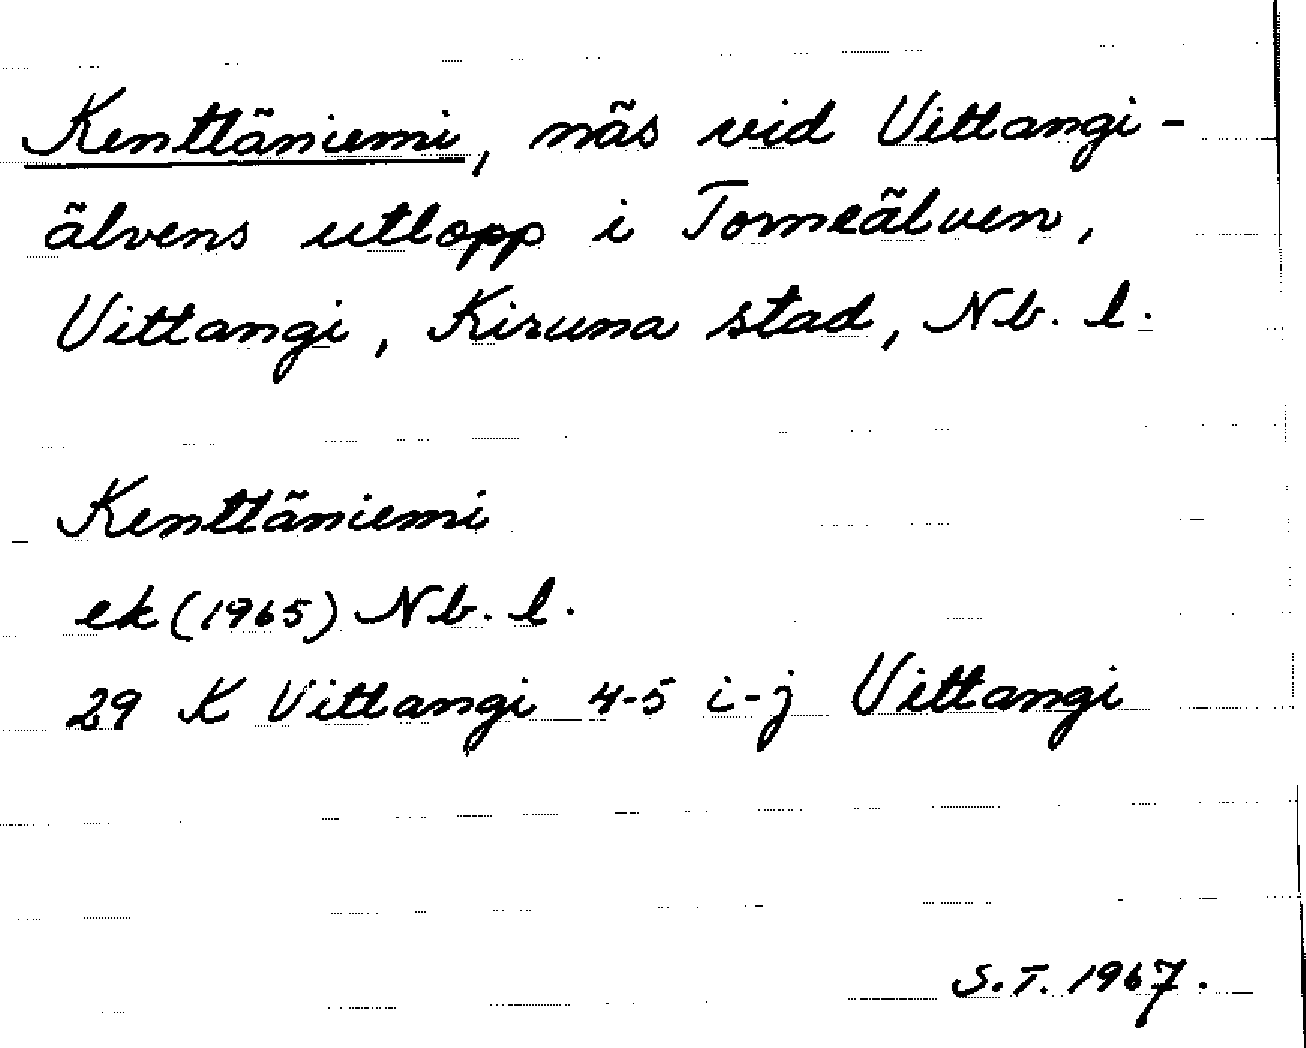 Kenttäniemi, näs vid Vittangi-
älvens utlopp i Torneälven,
Vittangi, Kiruna stad, Nb. l.
Kenttäniemi
ek (1965) Nb. l.
29 K Vittangi 4-5 i-j Vittangi
S.T. 1967.